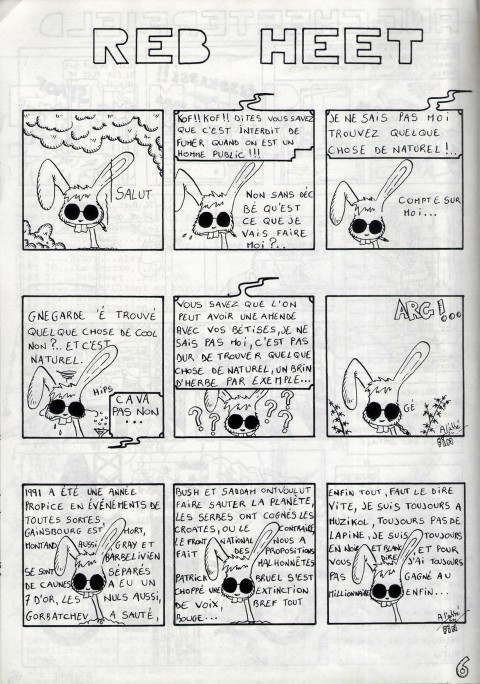 REB HEET
SALUT
KOF!! KOF!! DITES VOUS SAVEZ
QUE C'EST INTERDIT DE
FUMER QUAND ON EST UN
HOMME PUBLIC!!!
NON SANS DÉC
BÉ QU'EST
CE QUE JE
VAIS FAIRE
MOI?..
JE NE SAIS PAS MOI
TROUVEZ QUELQUE
CHOSE DE NATUREL!..
COMPTE SUR
MOI...
GNEGARDE 'É TROUVÉ
QUELQUE CHOSE DE COOL
NON?.. ET C'EST
NATUREL.
HIPS
CA VA
PAS NON
...
VOUS SAVEZ QUE L'ON
PEUT AVOIR UNE AMENDE
AVEC VOS BÉTISES, JE NE
SAIS PAS MOI, C'EST PAS
DUR DE TROUVER QUELQUE
CHOSE DE NATUREL, UN BRIN
D'HERBE PAR EXEMPLE...
? ? ? ? ? ?
ARG!...
GÉ
1991 A ÉTÉ UNE ANNÉE
PROPICE EN ÉVÉNEMENTS DE
TOUTES SORTES,
GAINSBOURG EST MORT,
MONTAND AUSSI, GRAY ET
BARBELIVIEN
SE SONT SÉPARÉS
DE CAUNES A EU UN
7 D'OR, LES NULS AUSSI,
GORBATCHEV A SAUTÉ,
BUSH ET SADDAM ONT VOULUT
FAIRE SAUTER LA PLANÈTE,
LES SERBES ONT COGNÉS LES
CROATES, OU LE CONTRAIRE,
LE FRONT NATIONAL NOUS A
FAIT DES PROPOSITIONS
MALHONNÊTES
PATRICK BRUEL S'EST
CHOPPÉ UNE EXTINCTION
DE VOIX, BREF TOUT
BOUGE...
ENFIN TOUT, FAUT LE DIRE
VITE, JE SUIS TOUJOURS A
MUZIKOL, TOUJOURS PAS DE
LAPINE, JE SUIS TOUJOURS
EN NOIR ET BLANC ET POUR
VOUS DIRE J'AI TOUJOURS
PAS GAGNÉ AU
MILLIONNAIRE ENFIN...
6